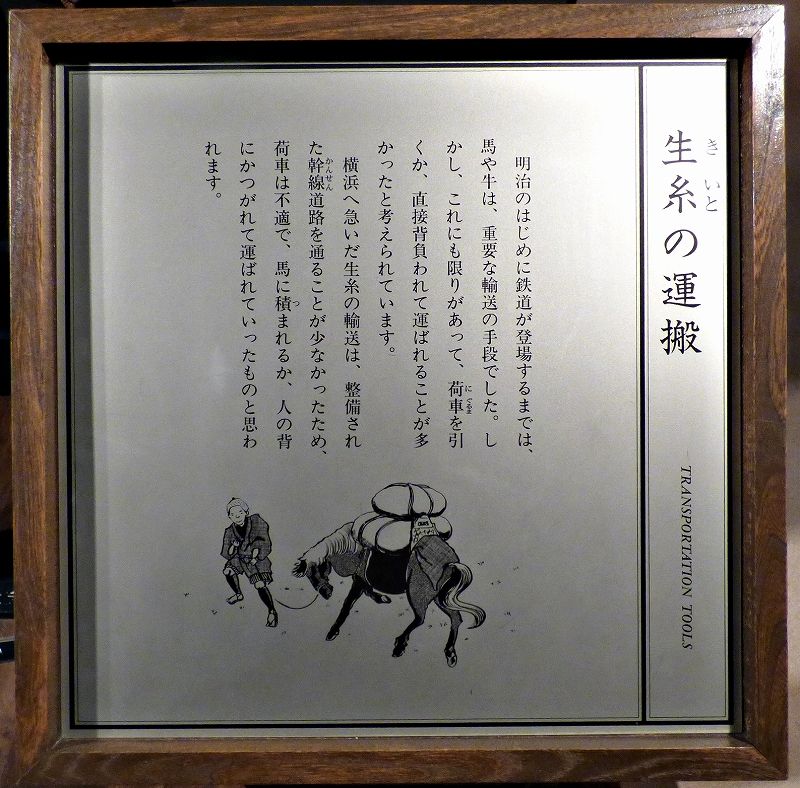 生糸の運搬
きいと
TRANSPORTATION TOOLS
明治のはじめに鉄道が登場するまでは、
馬や牛は、重要な輸送の手段でした。し
かし、これにも限りがあって、荷車を引
にぐるま
くか、直接背負われて運ばれることが多
かったと考えられています。
横浜へ急いだ生糸の輸送は、整備され
た幹線道路を通ることが少なかったため、
かんせん
荷車は不適で、馬に積まれるか、人の背
つ
にかつがれて運ばれていったものと思わ
れます。